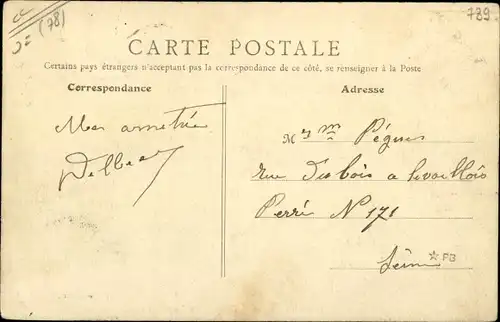 (78)
789
CARTE POSTALE
Certains pays étrangers n'acceptant pas la correspondance de ce côté, se renseigner à la Poste
Correspondance
Adresse
Mes
M
rue Dubois a levallois
Perré N 171
Seine
☆ PB